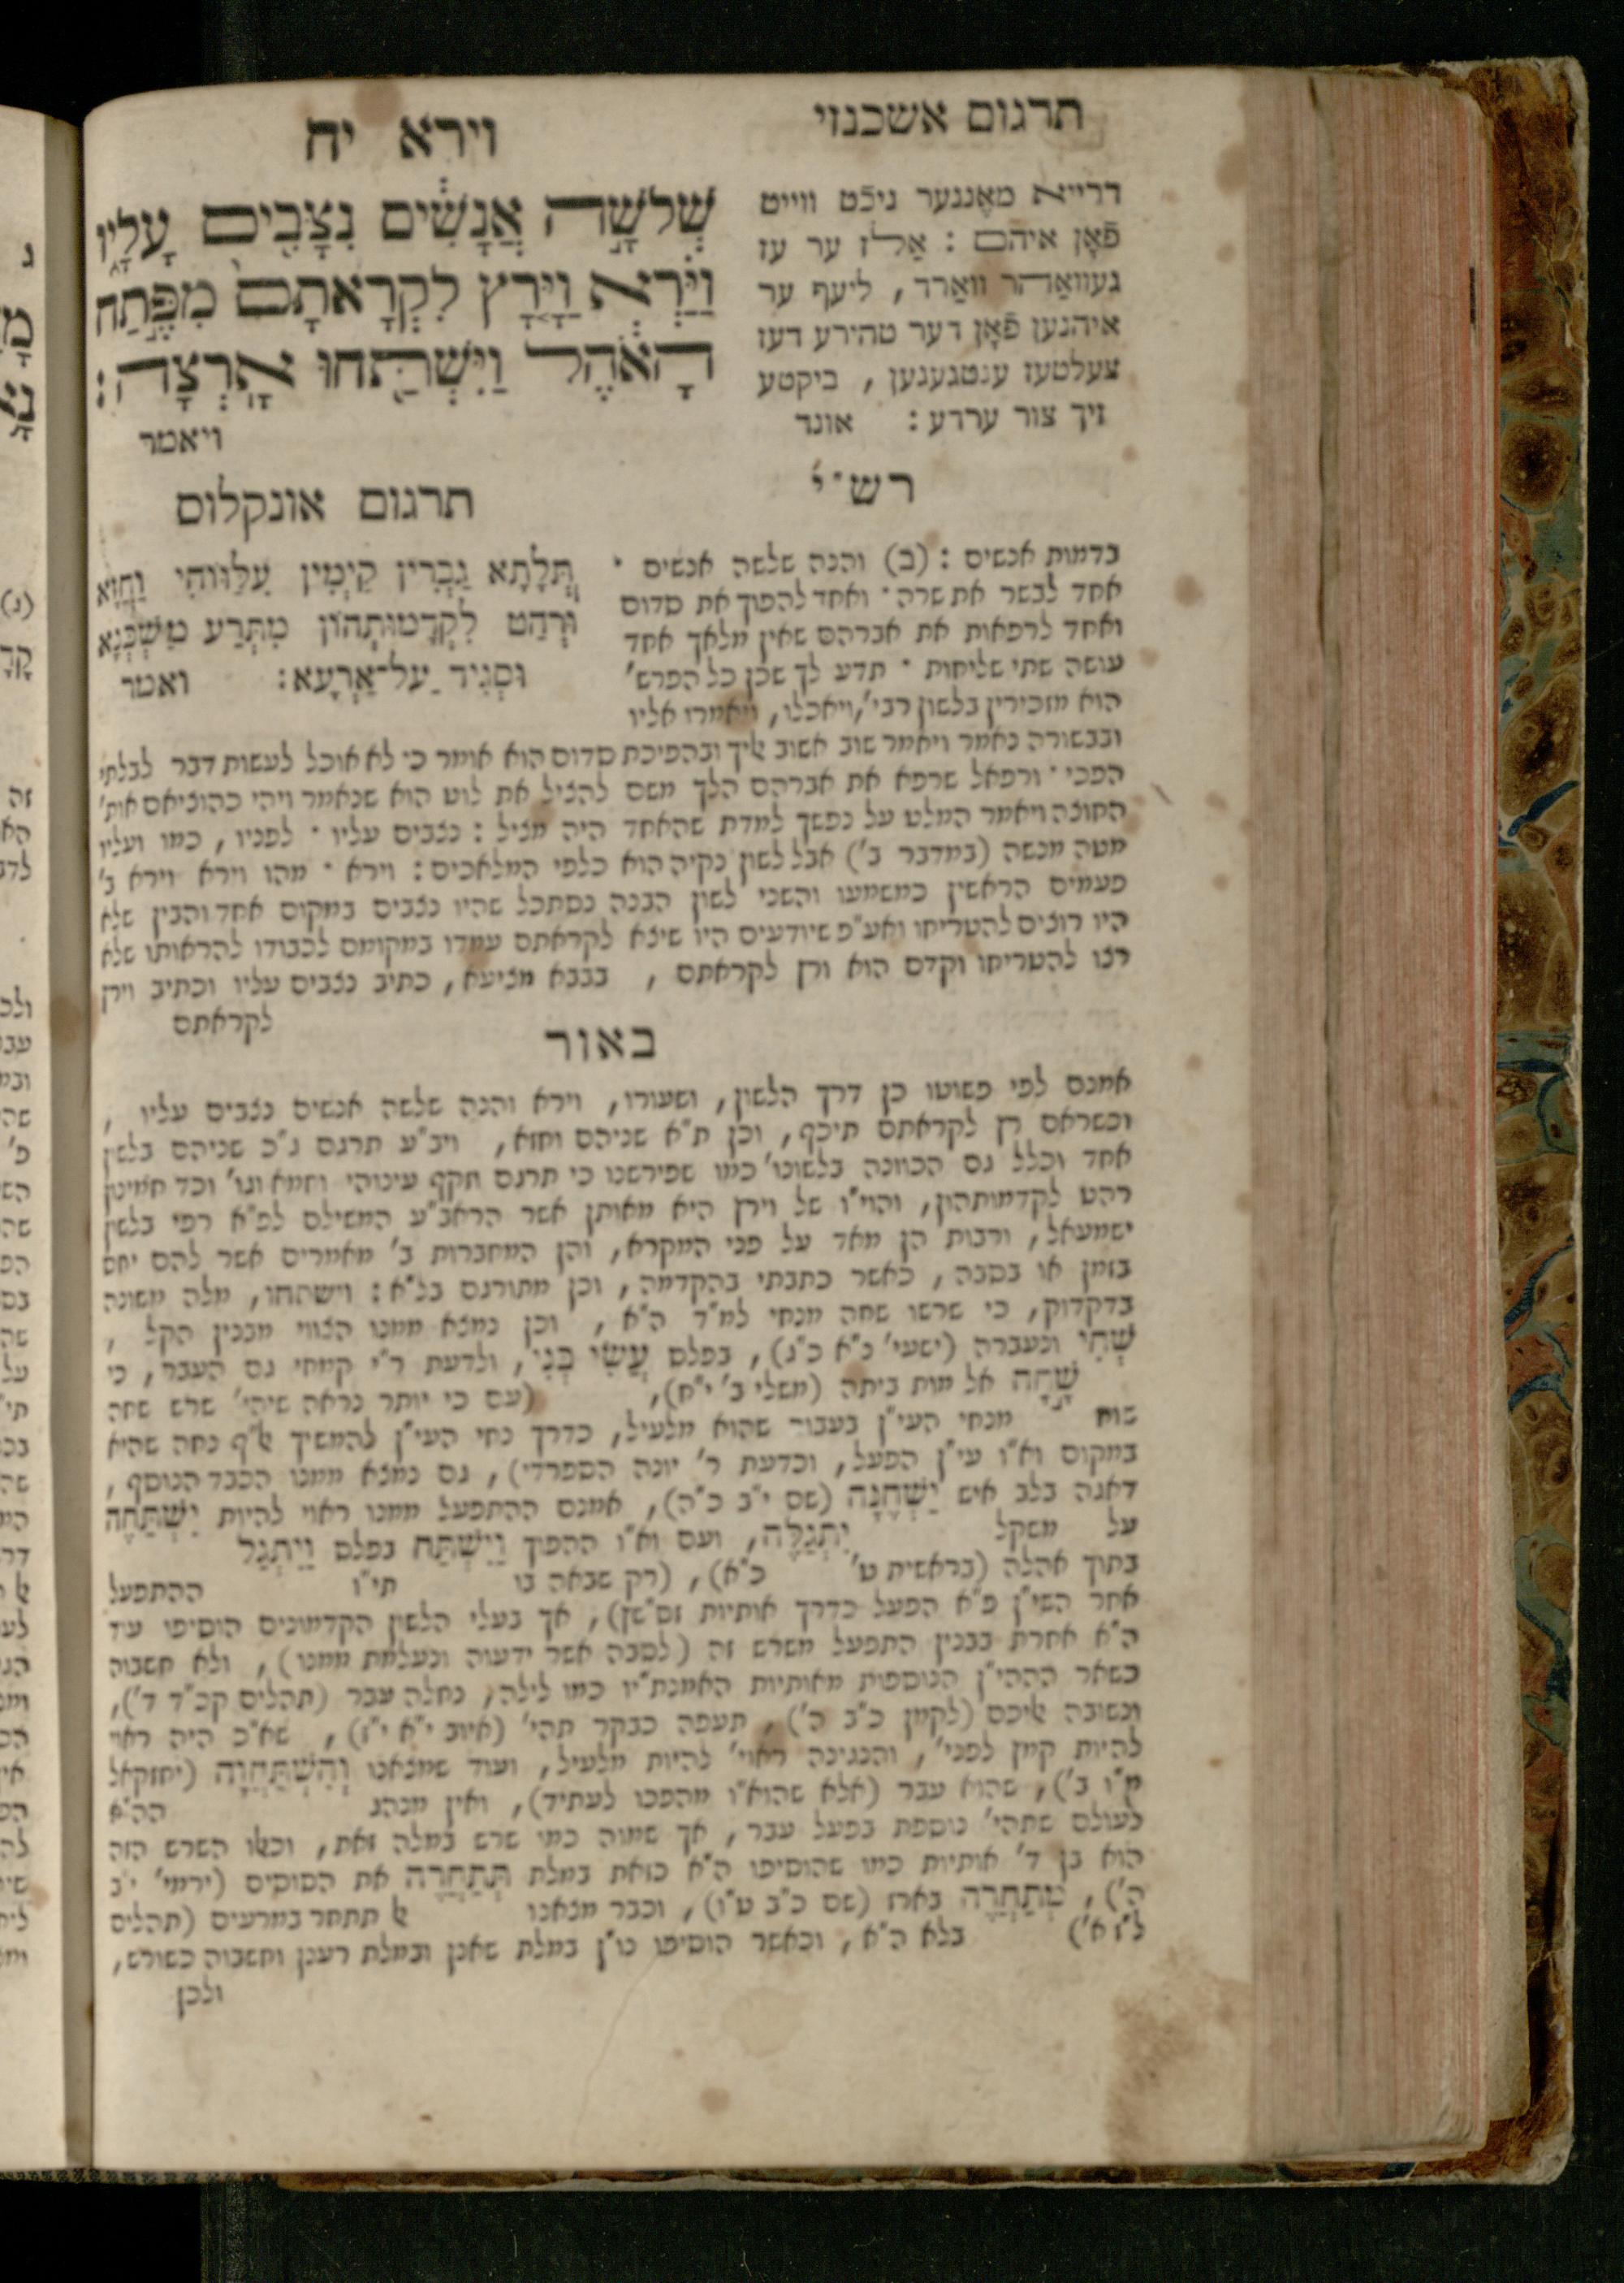 תרגום אשכנזי
וירא יח
דרייא מאֶננער ניכֿט ווייט
פֿאָן איהם : אַלז ער עז
געוואַהר וואַרד, ליעף ער
איהנען פֿאָן דער טהירע דעז
צעלטעז ענטגעגען , ביקטע
זיך צור ערדע : אונד
שְׁלֹשָׁה אֲנָשִׁים נִצָּבִים עָלָיו
וַיַּרְא וַיָּרָץ לִקְרָאתָם מִפֶּתַח
הָאֹהֶל וַיִּשְׁתַּחוּ אָרְצָה׃
ויאמר
רש״י
בדמות אנשים : (ב) והנה שלשה אנשים ·
אחד לבשר את שרה · ואחד להפוך את סדום
ואחד לרפאות את אברהם שאין מלאך אחד
עושה שתי שליחות · תדע לך שכן כל הפרש׳
הוא מזכירין בלשון רבי׳, ויאכלו, ויאמרו אליו
ובבשורה נאמר ויאמר שוב אשוב אליך ובהפיכת סדום הוא אומר כי לא אוכל לעשות דבר לבלתי
הפכי · ורפאל שרפא את אברהם הלך משם להציל את לוט הוא שנאמר ויהי כהוציאם אות׳
החוצה ויאמר המלט על נפשך למדת שהאחד היה מציל : נצבים עליו · לפניו , כמו ועליו
מטה מנשה (במדבר ב׳) אבל לשון נקיה הוא כלפי המלאכים : וירא · מהו וירא וירא ב׳
פעמים הראשון כמשמעו והשני לשון הבנה נסתכל שהיו נצבים במקום אחד והבין שלא
היו רוצים להטריחו ואע״פ שיודעים היו שיצא לקראתם עמדו במקומם לכבודו להראותו שלא
רצו להטריחו וקדם הוא ורץ לקראתם , בבבא מציעא, כתיב נצבים עליו וכתיב וירץ
לקראתם
תרגום אונקלוס
תְּלָתָא גַבְרִין קַיְמִין עִלָּווֹהִי וַחֲזָא
וּרְהַט לְקַדָמוּתְהוֹן מִתְּרַע מַשְׁכְּנָא
וּסְגִיד עַל־אַרְעָא׃ ואמר
באור
אמנם לפי פשוטו כן דרך הלשון, ושעורו, וירא והנה שלשה אנשים נצבים עליו ,
וכשראם רץ לקראתם תיכף, וכן ת״א שניהם וחזא, ויב״ע תרגם ג״כ שניהם בלשון
אחד וכלל גם הכוונה בלשונו׳ כמו שפירשנו כי תרגם זקף עינוהי וחמא וגו׳ וכד חמינון
רהט לקדמותהון, והוי״ו של וירץ היא מאותן אשר הראב״ע המשילם לפ״א רפי בלשון
ישמעאל, ורבות הן מאד על פני המקרא, והן המחברות ב׳ מאמרים אשר להם יחס
בזמן או בסבה, כאשר כתבתי בהקדמה, וכן מתורגם בל״א : וישתחו, מלה משונה
בדקדוק, כי שרשו שחה מנחי למ״ד ה״א , וכן נמצא ממנו הצווי מבנין הקל ,
שְׁחִי ונעברה (ישעי׳ נ״א כ״ג), בפלס עֲשִׂי בְּנִי, ולדעת ר״י קמחי גם העבר, כי
שָׁחָה אל מות ביתה (משלי ב׳ י״ח), (עם כי יותר נראה שיהי׳ שרש שחה
שוח מנחי העי״ן בעבור שהוא מלעיל, כדרך נחי העי״ן להמשיך אל״ף נחה שהיא
במקום וא״ו עי״ן הפעל, וכדעת ר׳ יונה הספרדי), גם נמצא ממנו הכבד הנוסף,
דאגה בלב איש יַשְׁחֶנָּה (שם י״ב כ״ה), אמנם ההתפעל ממנו ראוי להיות יִשְׁתַּחֶה
על משקל יִתְגַלֶּה, ועם וא״ו ההפוך וַיִשְׁתַּח בפלס וַיִּתְגַּל
בתוך אהלה (בראשית ט׳ כ״א), (רק שבאה בו תי״ו ההתפעל
אחר השי״ן פ״א הפעל כדרך אותיות זס״שץ), אך בעלי הלשון הקדמונים הוסיפו עוד
ה״א אחרת בבנין התפעל משרש זה (לסבה אשר ידעוה ונעלמת ממנו), ולא חשבוה
כשאר ההה״ין הנוספות מאותיות האמנת״יו כמו לילה, נחלה עבר (תהלים קכ״ד ד׳),
ונשובה אליכם (לקמן כ״ב ה׳), תעפה כבקר תהי׳ (איוב י״א י״ז), שא״כ היה ראוי
להיות קמץ לפני׳, והנגינה ראוי׳ להיות מלעיל, ועוד שמצאנו וְהִשְׁתַּחֲוָה (יחזקאל
מ״ו ב׳), שהוא עבר (אלא שהוא״ו מהפכו לעתיד), ואין מנהג הה״א
לעולם שתהי׳ נוספת בפעל עבר, אך שמוה כמו שרש במלה זאת, וכאלו השרש הזה
הוא בן ד׳ אותיות כמו שהוסיפו ה״א כזאת במלת תְּתַחֲרֶה את הסוסים (ירמי׳ י״ב
ה׳), מְתַחֲרֶה בארז (שם כ״ב ט״ו), וכבר מצאנו אל תתחר במרעים (תהלים
ל״ז א׳) בלא ה״א, וכאשר הוסיפו נו״ן במלת שאנן ובמלת רענן וחשבוה כשורש,
ולכן